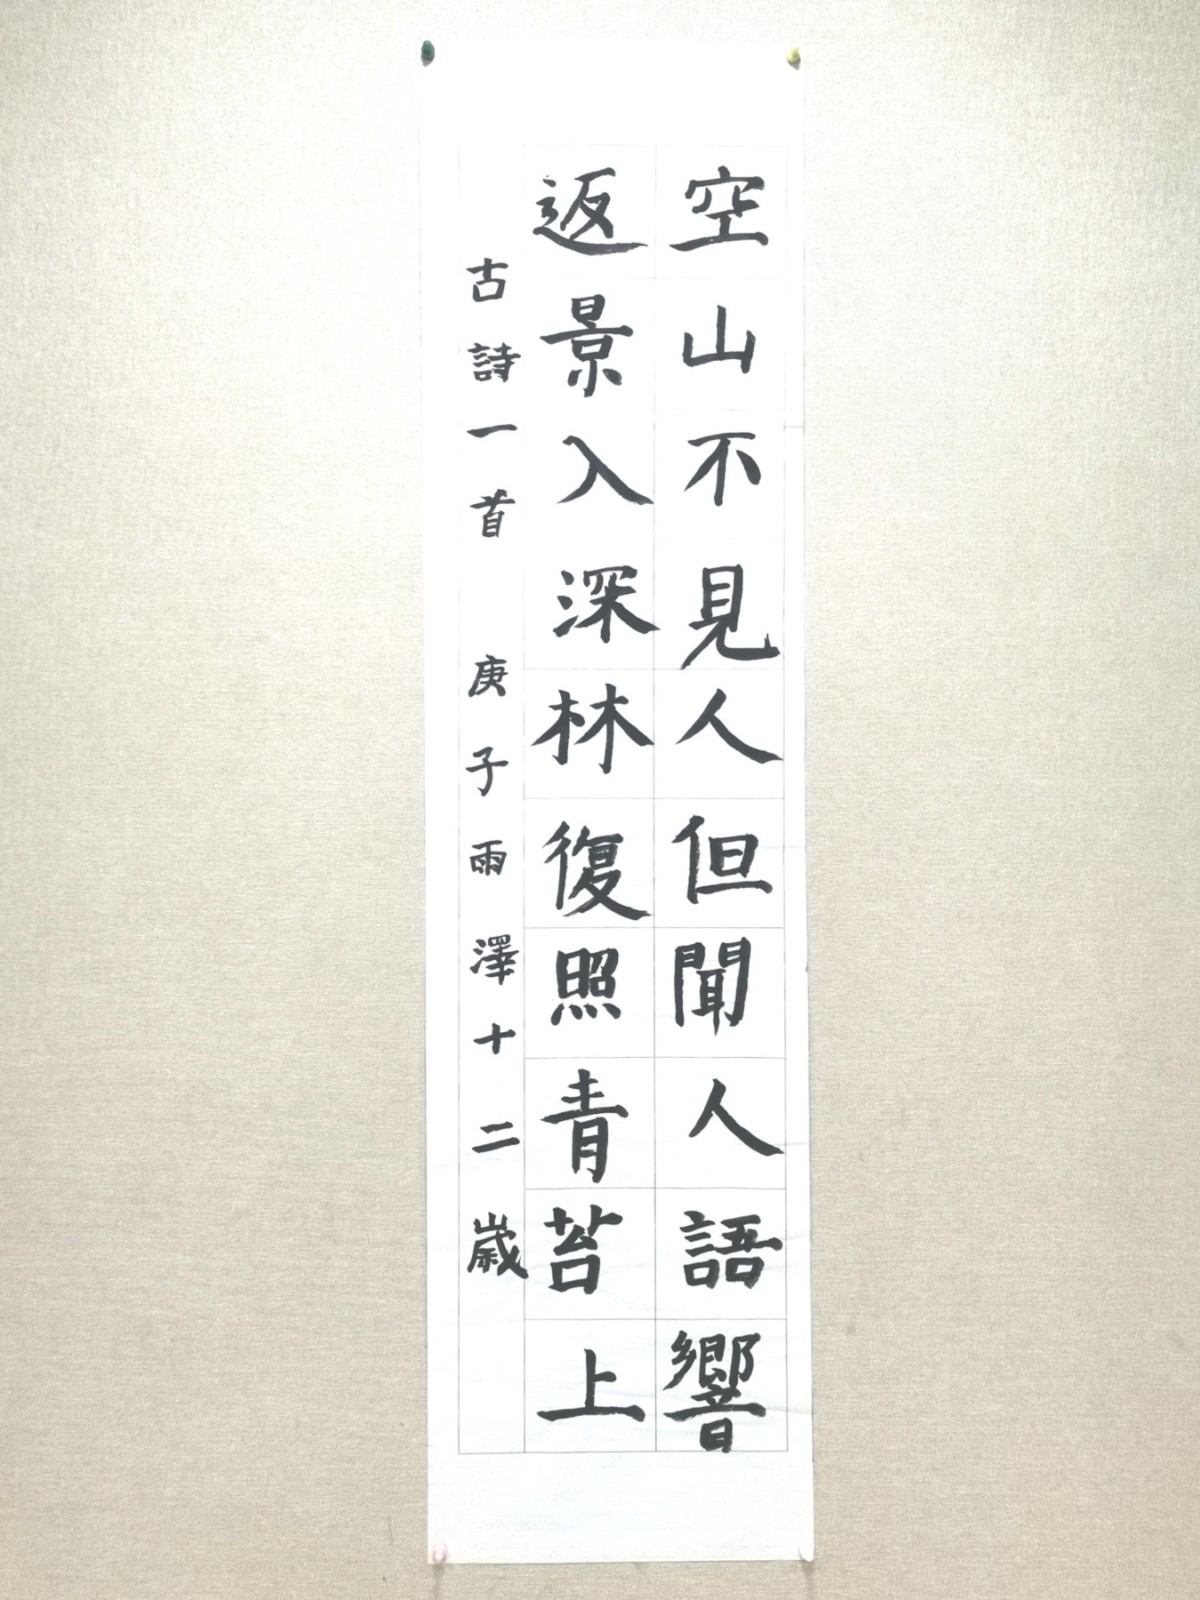 空山不見人但聞人語響
返景入深林復照青苔上
古詩一首 庚子雨澤十二歲